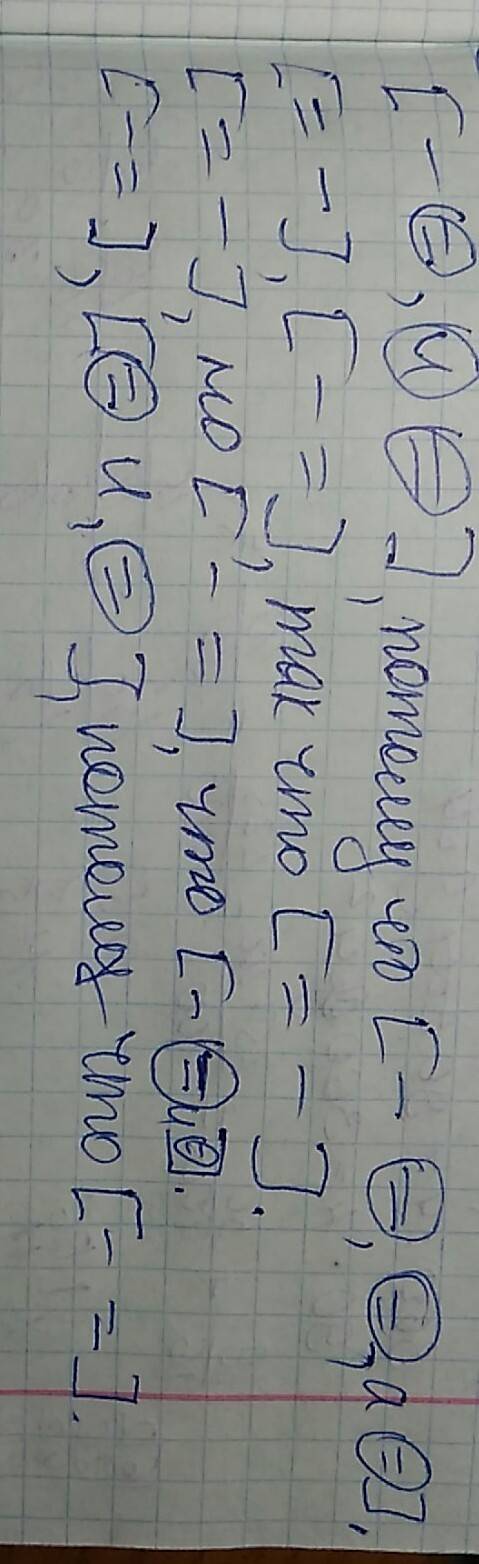 [ – ⊜, и ⊜ ], потому что [ – ⊜, ⊜, а ⊜ ],
[ = – ], [ – = ], так что [ = – ].
[ = – ], но [ – = ], что [ – ⊜ и ].
[ – = ], [ ⊜ и, ⊜ ], потому что [ – = ].